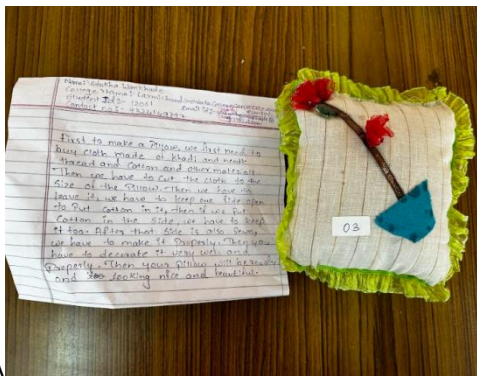 Name:-
College Name:- Laxmi
Student Id:- 12061
Contact no:-
Email Id:-
First to make a Pillow, we first need to
buy cloth made of khadi and needle
thread and Cotton and other materail
Then we have to cut the cloth to the
size of the Pillow. Then we have to
leave it, we have to keep one side open
to Put cotton in it, then if we Put
Cotton in the side, we have to keep
it too. After that side is also Sewn,
we have to make it Properly. Then you
have to decorate it very well and
Properly. Then your Pillow will be ready
and looking nice and beautiful.
03